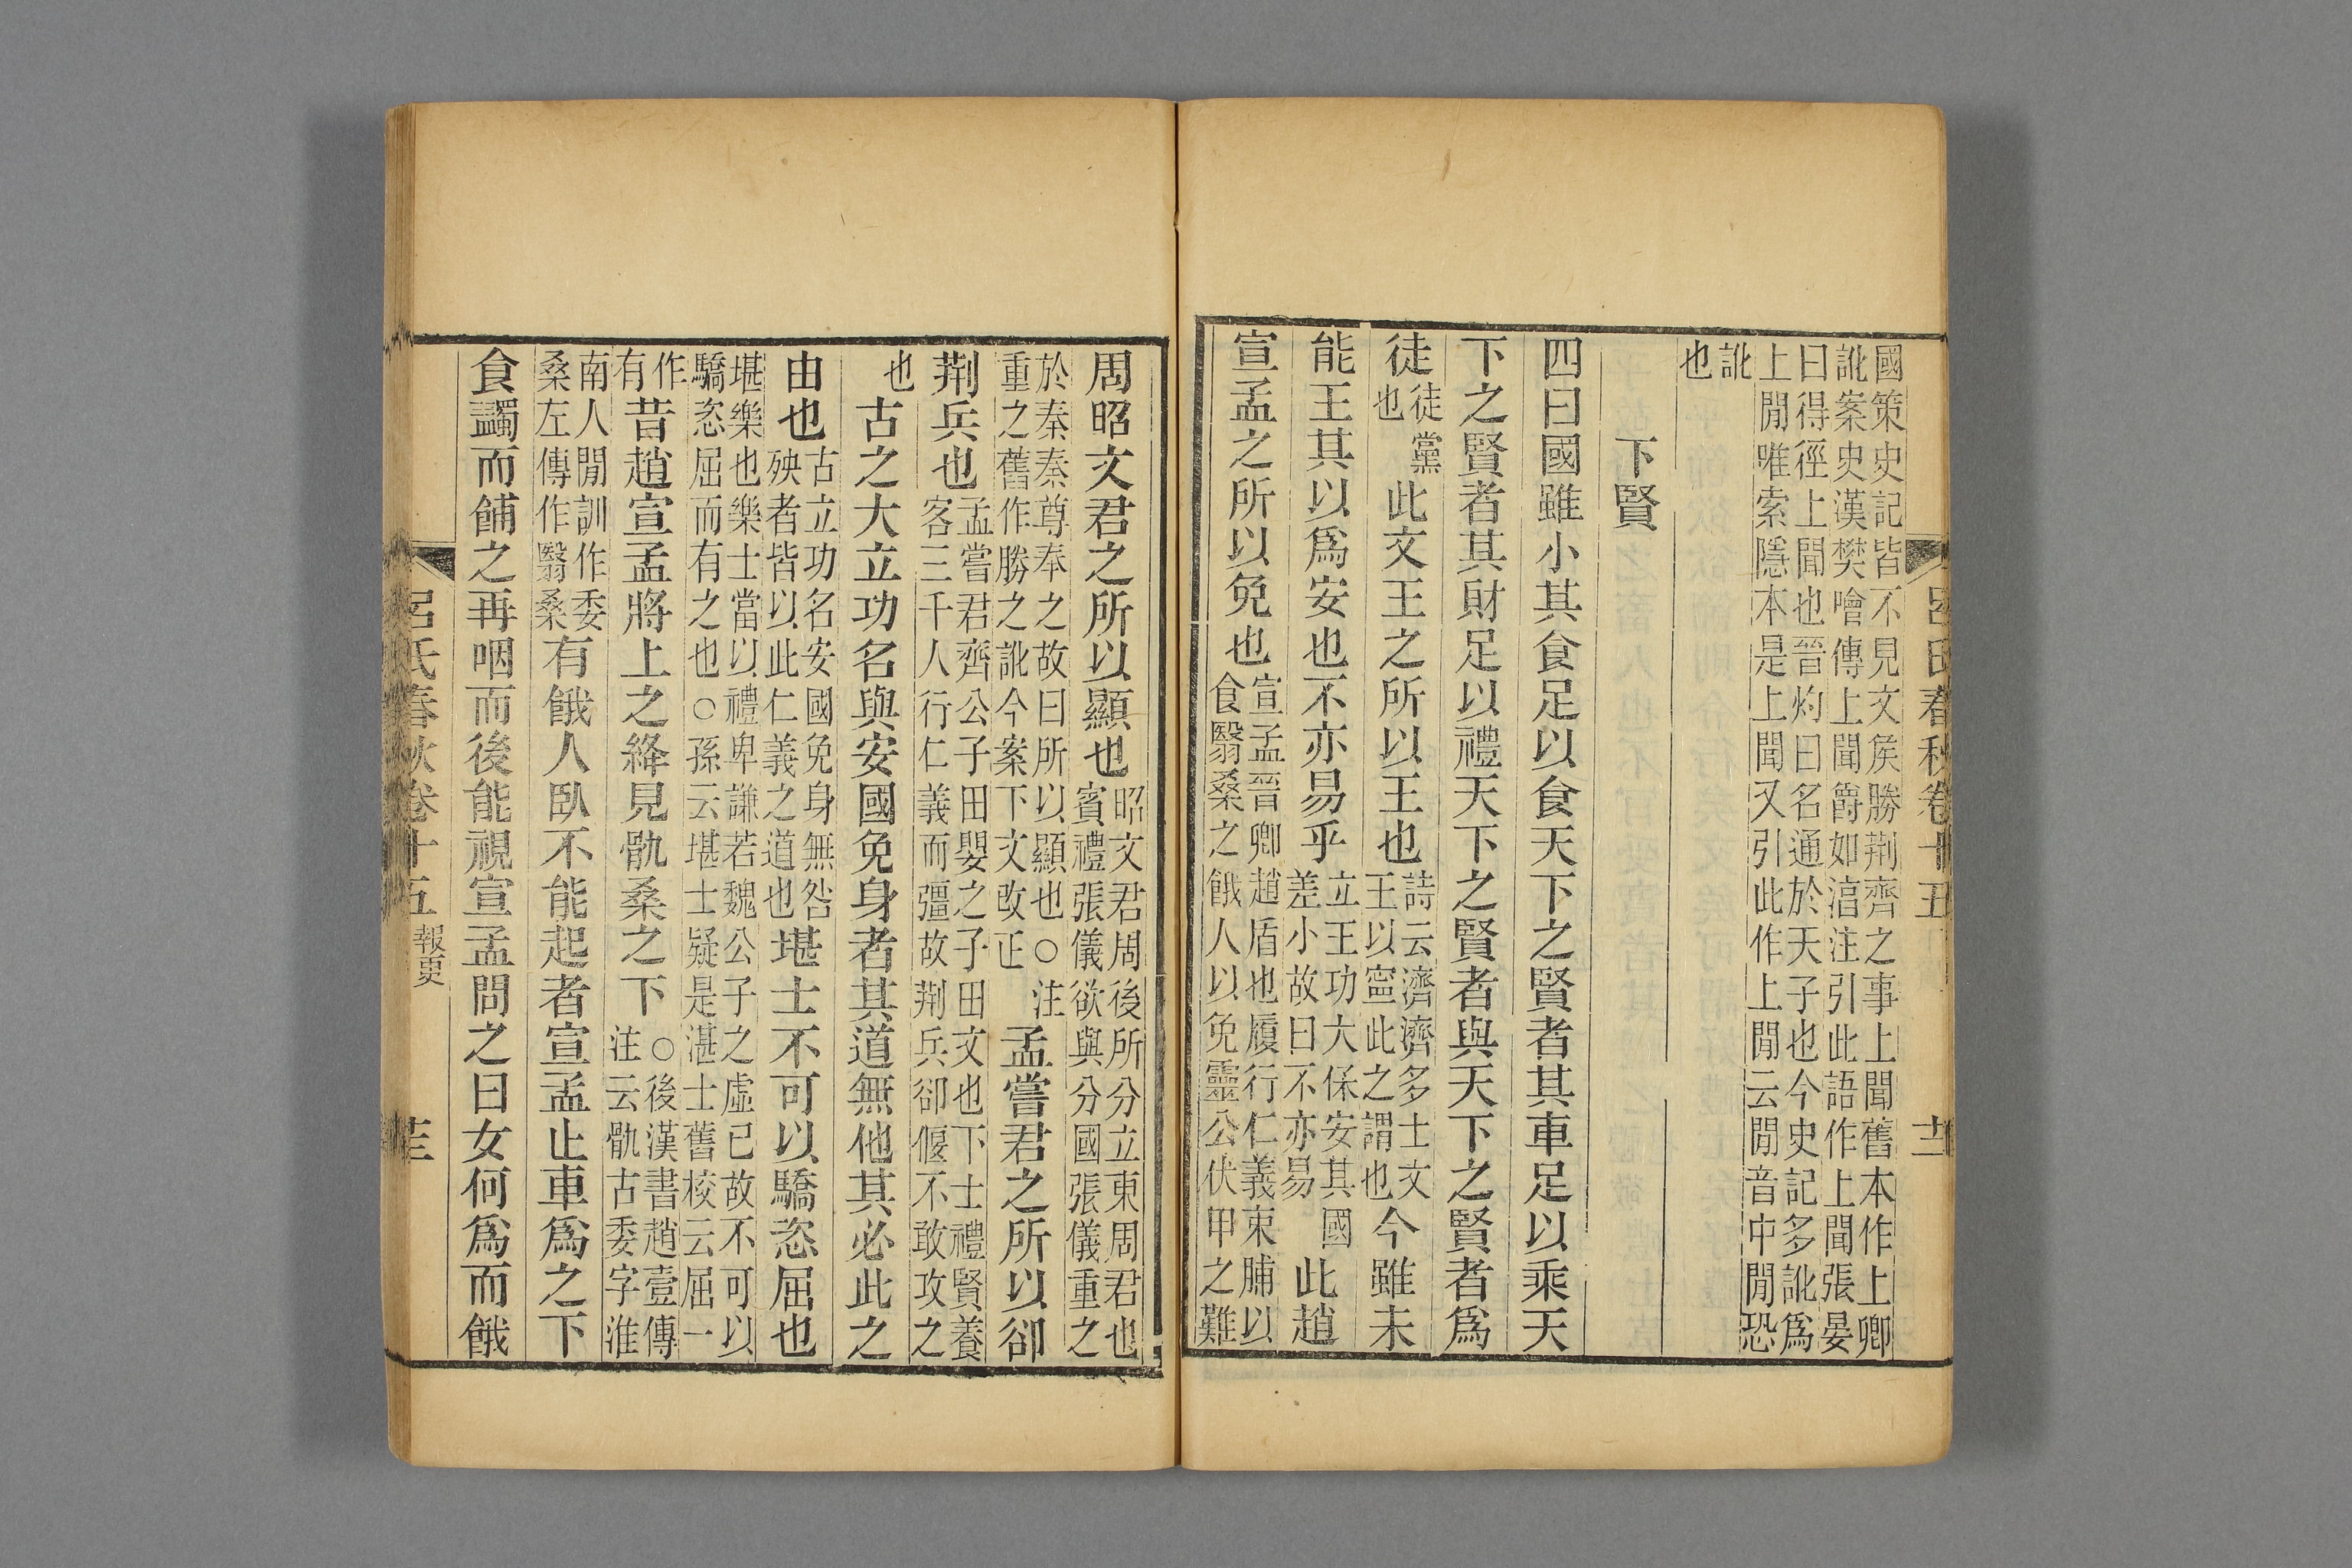 呂氏春秋卷十五 十二
國策史記皆不見文侯勝荆齊之事上聞舊本作上卿
訛案史漢樊噲傳上聞爵如湻注引此語作上聞張晏
曰得徑上聞也晉灼曰名通於天子也今史記多訛爲
上閒唯索隱本是上聞又引此作上閒云閒音中閒恐
訛
也
下賢
四曰國雖小其食足以食天下之賢者其車足以乘天
下之賢者其財足以禮天下之賢者與天下之賢者爲
徒徒黨也此文王之所以王也詩云濟濟多士文王以寍此之謂也今雖未
能王其以爲安也不亦易乎立王功大保安其國差小故曰不亦易此趙
宣孟之所以免也宣孟晉卿趙盾也履行仁義束脯以食翳桑之餓人以免靈公伏甲之難
周昭文君之所以顯也昭文君周後所分立東周君也賓禮張儀欲與分國張儀重之
於秦秦尊奉之故曰所以顯也○注重之舊作勝之訛今案下文改正孟嘗君之所以卻
荆兵也孟嘗君齊公子田嬰之子田文也下士禮賢養客三千人行仁義而彊故荆兵卻偃不敢攻之
也古之大立功名與安國免身者其道無他其必此之
由也古立功名安國免身無咎殃者皆以此仁義之道也堪士不可以驕恣屈也
堪樂也樂士當以禮卑謙若魏公子之虛己故不可以
驕恣屈而有之也○孫云堪士疑是湛士舊校云屈一
作有昔趙宣孟將上之絳見骫桑之下○後漢書趙壹傳注云骫古委字淮
南人閒訓作委桑左傳作翳桑有餓人臥不能起者宣孟止車爲之下
食蠲而餔之再咽而後能視宣孟問之曰女何爲而餓
呂氏春秋卷十五 報更 十三